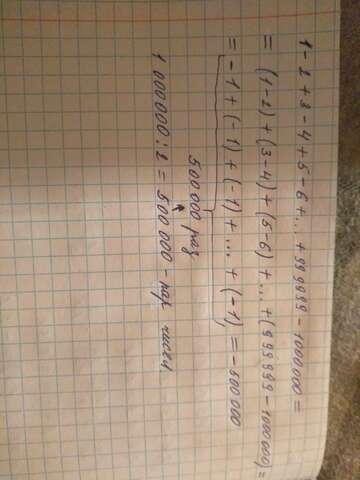 1 - 2 + 3 - 4 + 5 - 6 + ... + 999999 - 1000000 =
= (1-2) + (3-4) + (5-6) + ... + (999999 - 1000000) =
= -1 + (-1) + (-1) + ... + (-1) = -500000
500000 раз
1000000 : 2 = 500000 - пар чисел